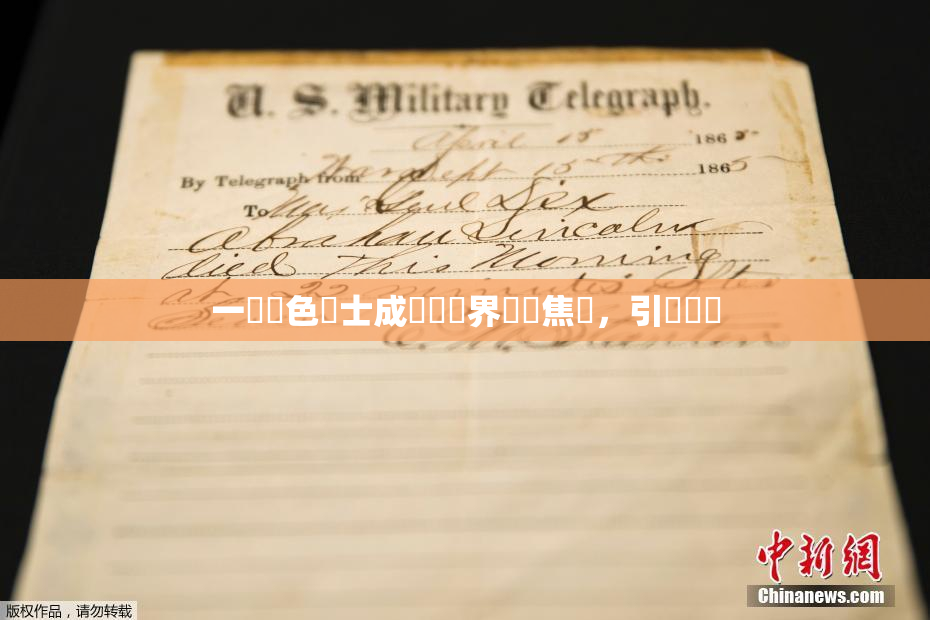 U. S. Military Telegraph.
April 15 1865
By Telegraph from War Dept 15th 1865
To Maj Genl Dix
Abraham Lincoln
died This Morning
at 22 minutes after
一色士成界焦，引
E. M. Stanton
中新网
Chinanews.com
版权作品，请勿转载